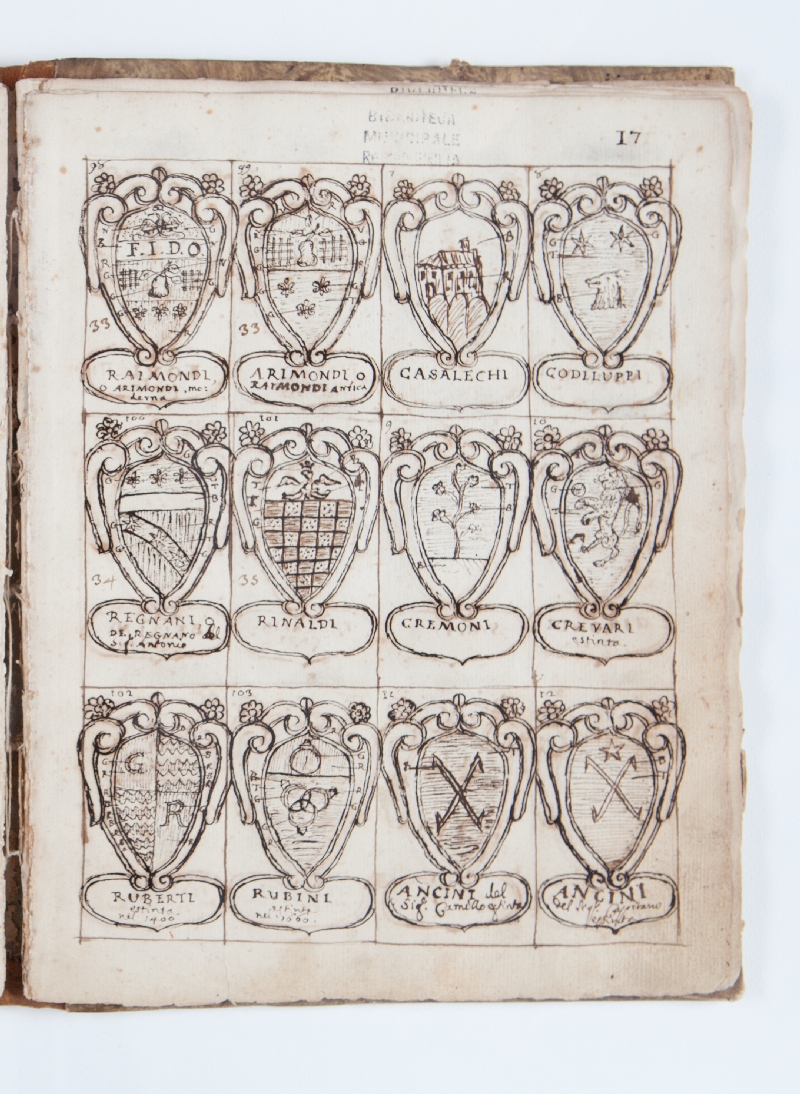 BIBLIOTECA
BIBLIOTECA
MUNICIPALE
17
98
F.I.D.O
33
RAIMONDI
O ARIMONDI, mo:
derna
99
33
ARIMONDI O
RAIMONDI ANTICA
7
CASALECHI
8
CODILUPPI
100
34
REGNANI, O
DEL REGNANO del
Sig. Antonio
101
35
RINALDI
9
CREMONI
10
CREVARI
estinta.
102
G
R
RUBERTI
estinta
nel 1400
103
RUBINI
estinta
nel 1660.
11
ANCINI del
Sig. Camillo estinta
12
ANCINI
del Sig.
estinta